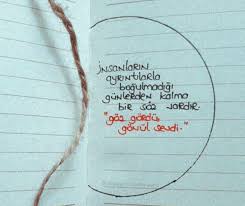 insanların
ayrıntılarla
boğulmadığı
günlerden kalma
bir söz vardır.
"göz gördü,
gönül sevdi."